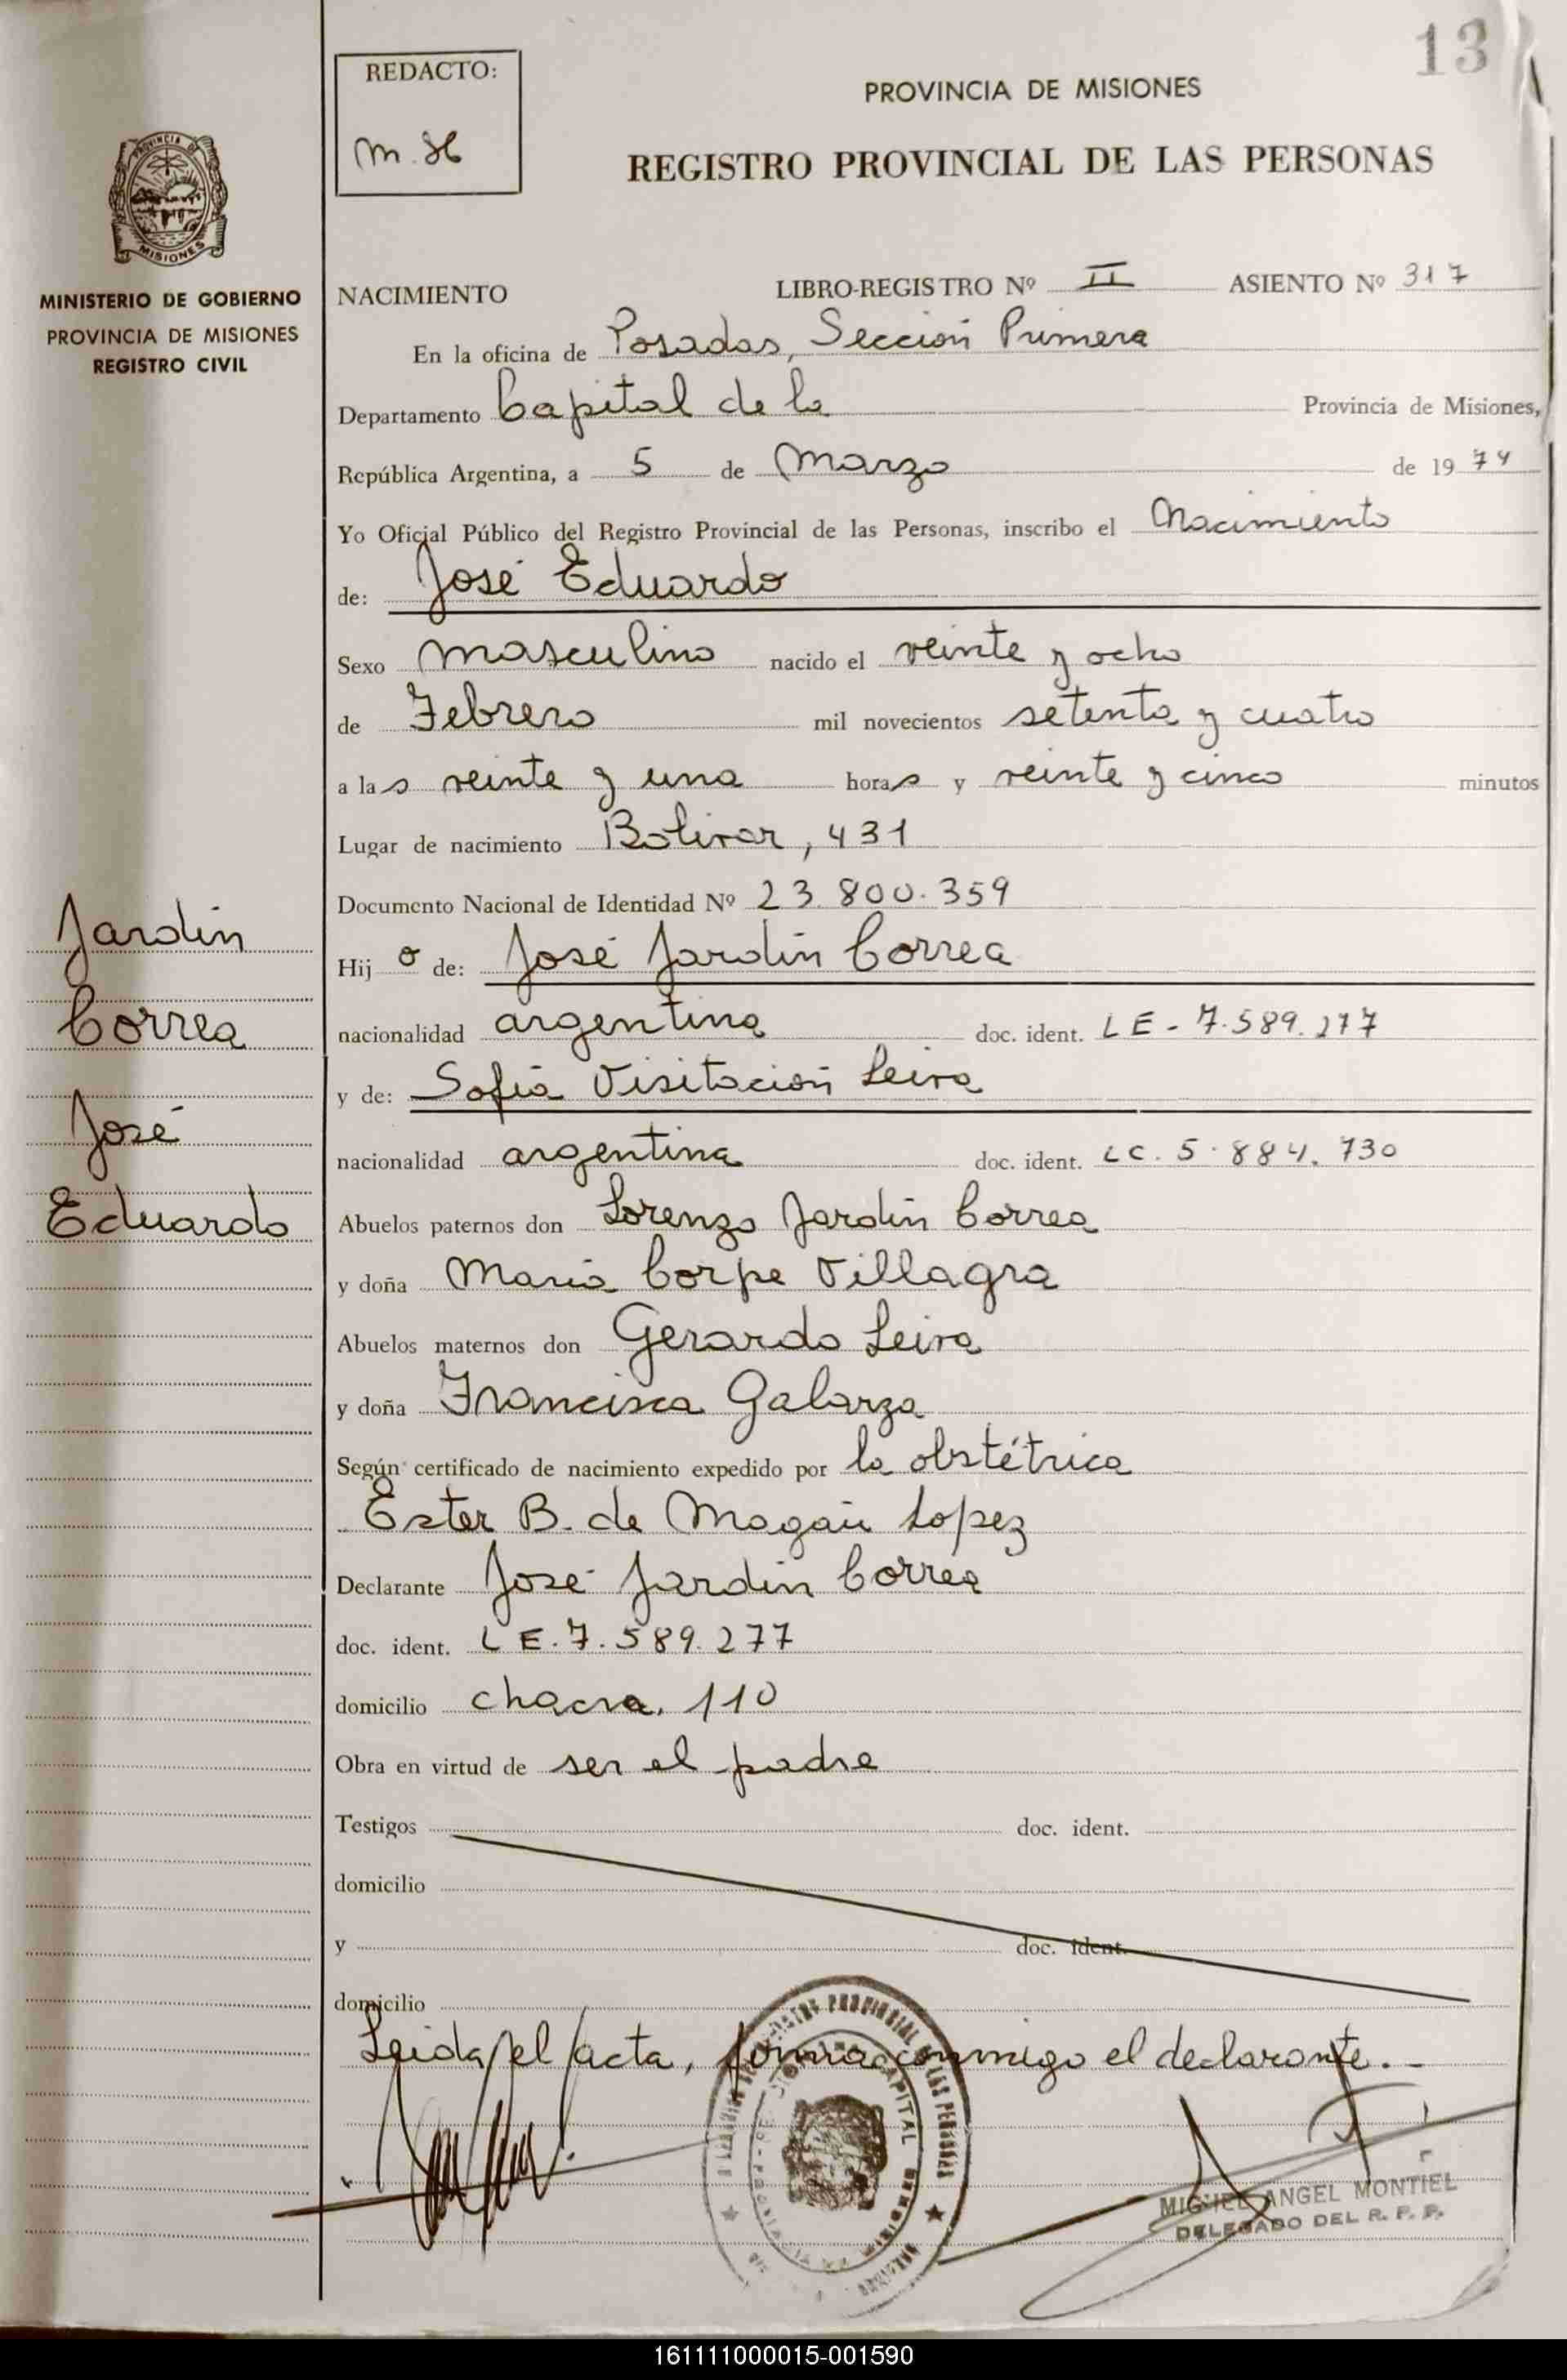 13
REDACTO:
M. H
PROVINCIA DE MISIONES
REGISTRO PROVINCIAL DE LAS PERSONAS
PROVINCIA DE MISIONES
MINISTERIO DE GOBIERNO
PROVINCIA DE MISIONES
REGISTRO CIVIL
NACIMIENTO LIBRO-REGISTRO Nº II ASIENTO Nº 317
En la oficina de Posadas, Sección Primera
Departamento Capital de la Provincia de Misiones,
República Argentina, a 5 de Marzo de 1974
Yo Oficial Público del Registro Provincial de las Personas, inscribo el Nacimiento
de: José Eduardo
Sexo masculino nacido el veinte y ocho
de Febrero mil novecientos setenta y cuatro
a las veinte y una horas y veinte y cinco minutos
Lugar de nacimiento Bolivar, 431
Documento Nacional de Identidad Nº 23.800.359
Hijo de: José Jardin Correa
nacionalidad argentina doc. ident. LE - 7.589.277
y de: Sofia Visitación Leiva
nacionalidad argentina doc. ident. LC. 5.884.730
Abuelos paternos don Lorenzo Jardin Correa
y doña Maria Corpe Villagra
Abuelos maternos don Gerardo Leiva
y doña Francisca Galarza
Según certificado de nacimiento expedido por la obstétrica
Ester B. de Magan Lopez
Declarante José Jardin Correa
doc. ident. LE. 7.589.277
domicilio chacra. 110
Obra en virtud de ser el padre
Testigos doc. ident.
domicilio
y doc. ident.
domicilio
Leida el acta, firma conmigo el declarante.-
Jardin
Correa
José
Eduardo
MIGUEL ANGEL MONTIEL
DELEGADO DEL R. P. P.
161111000015-001590